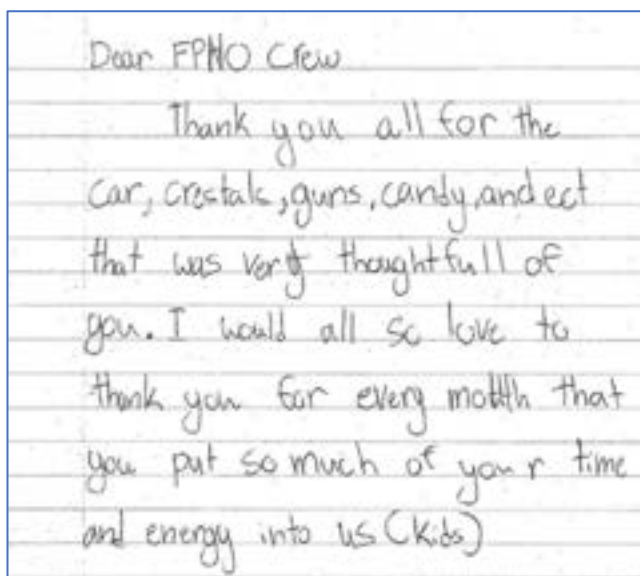 Dear FPNO Crew
Thank you all for the
car, crestals, guns, candy, and ect
that was very thoughtfull of
you. I would all so love to
thank you for every motth that
you put so much of your time
and energy into us (Kids)